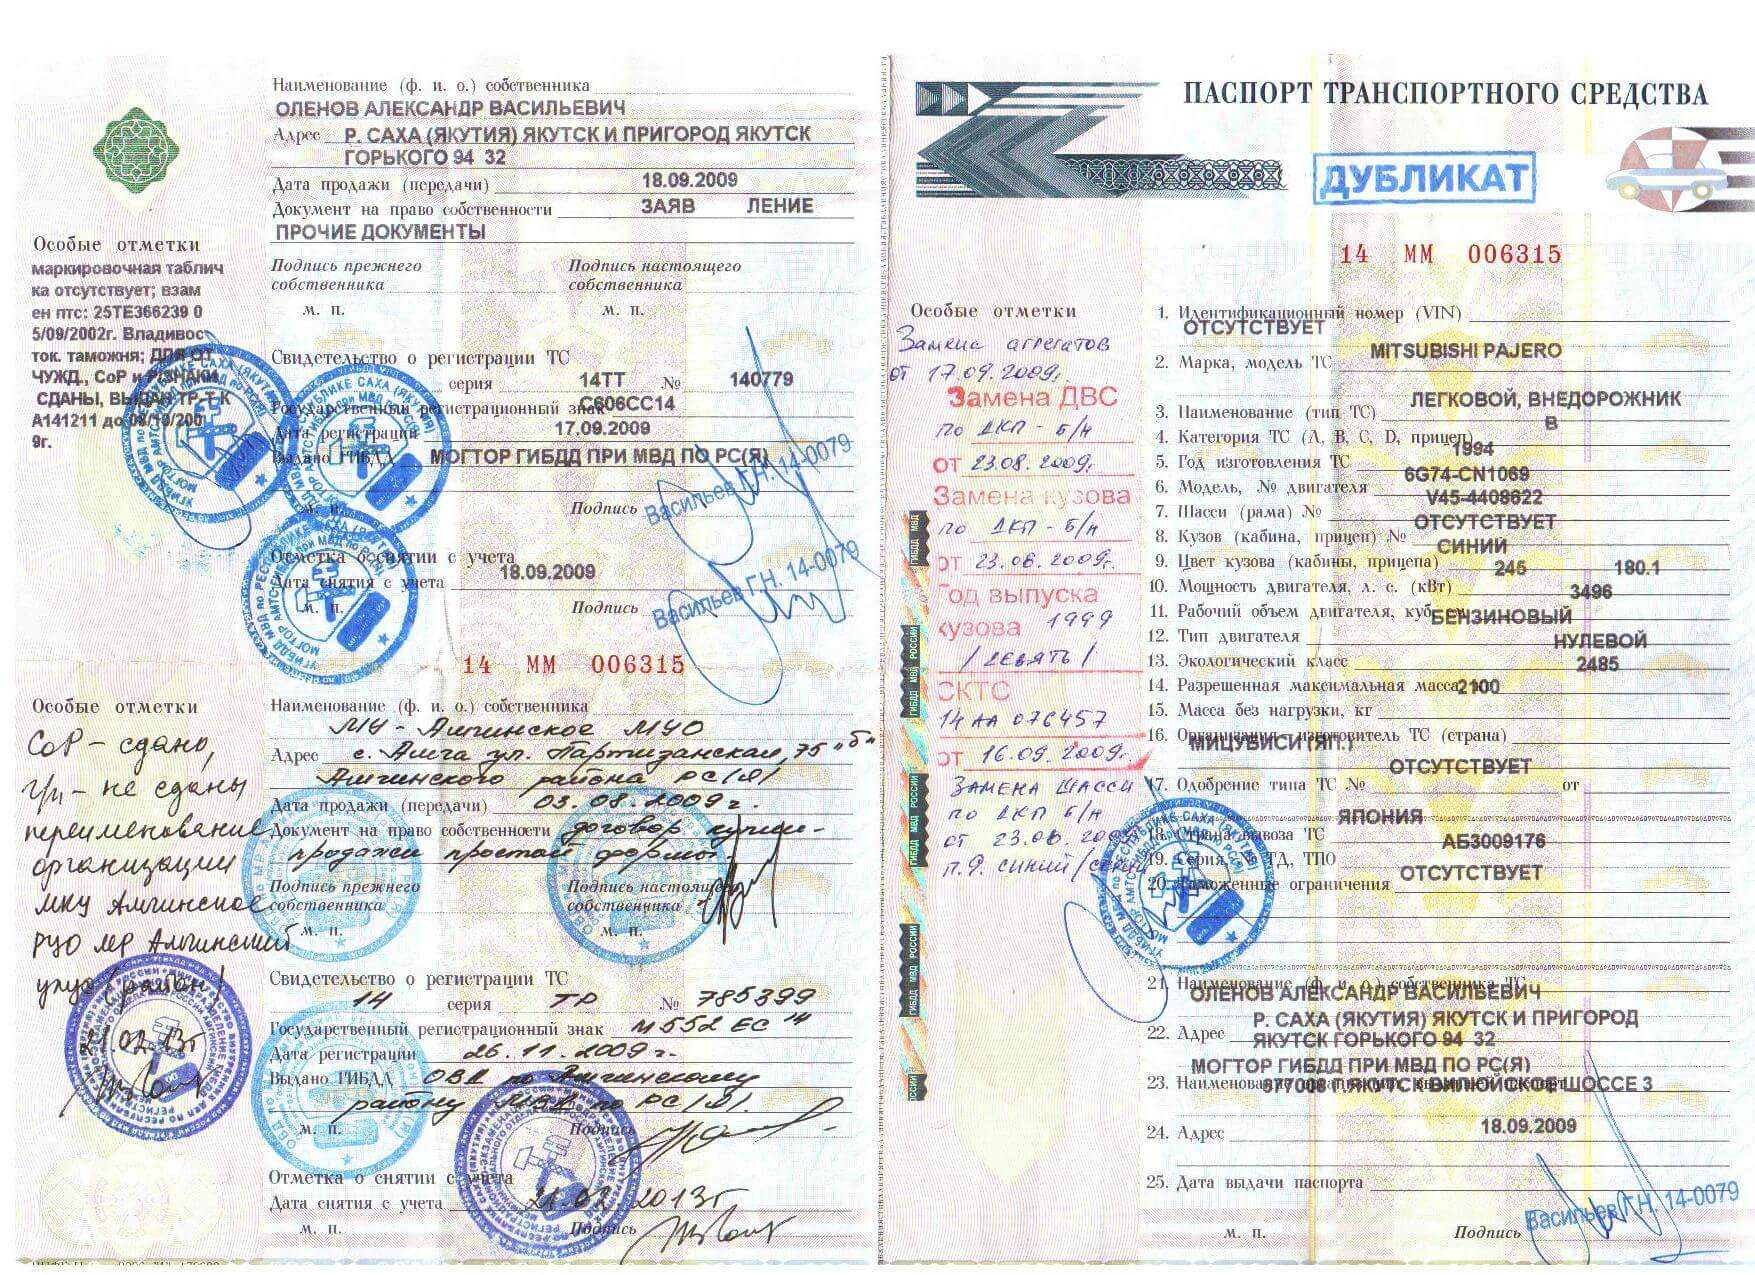 Наименование (ф. и. о.) собственника
ОЛЕНОВ АЛЕКСАНДР ВАСИЛЬЕВИЧ
Адрес Р. САХА (ЯКУТИЯ) ЯКУТСК И ПРИГОРОД ЯКУТСК
ГОРЬКОГО 94 32
Дата продажи (передачи) 18.09.2009
Документ на право собственности ЗАЯВ ЛЕНИЕ
ПРОЧИЕ ДОКУМЕНТЫ
Подпись прежнего собственника
Подпись настоящего собственника
м. п. м. п.
Особые отметки
маркировочная таблич
ка отсутствует; взам
ен птс: 25ТЕ366239 0
5/09/2002г. Владивос
ток. таможня; ДЛЯ ОТ
ЧУЖД., СоР и
СДАНЫ, ВЫДАН ТР-Т К
А141211 до 08/10/200
9г.
Свидетельство о регистрации ТС
серия 14ТТ № 140779
Государственный регистрационный знак С606СС14
Дата регистрации 17.09.2009
Выдано ГИБДД МОГТОР ГИБДД ПРИ МВД ПО РС(Я)
Подпись
Васильев Г.Н. 14-0079
Отметка о снятии с учета
Дата снятия с учета 18.09.2009
м. п. Подпись
Васильев Г.Н. 14-0079
14 ММ 006315
Особые отметки
СоР - сдано,
г/н - не сданы
переименование
организации
МКУ Амгинское
РУО МР Амгинский
улус (район)
21.02.13г
Наименование (ф. и. о.) собственника
МУ - Амгинское МУО
Адрес с. Амга ул. Партизанская, 75 "б"
Амгинского района РС(Я)
Дата продажи (передачи) 03.08.2009г.
Документ на право собственности договор купли-
продажи простой формы.
Подпись прежнего собственника
Подпись настоящего собственника
м. п. м. п.
Свидетельство о регистрации ТС
14 серия ТР № 785399
Государственный регистрационный знак М552ЕС 14
Дата регистрации 26.11.2009г.
Выдано ГИБДД ОВД по Амгинскому
району МВД по РС(Я).
м. п. Подпись
Отметка о снятии с учета
Дата снятия с учета 21.02.2013г
м. п. Подпись
ПАСПОРТ ТРАНСПОРТНОГО СРЕДСТВА
ДУБЛИКАТ
14 ММ 006315
Особые отметки
Замкис агрегатов
от 17.09.2009г.
Замена ДВС
по ДКП - б/н
от 23.08.2009г.
Замена кузова
по ДКП - б/н
от 23.06.2009г.
Год выпуска
кузова 1999
/девять/
СКТС
14 АА 076457
от 16.09.2009г.
Замена шасси
по ДКП б/н
от 23.06.2009
1. Идентификационный номер (VIN)
ОТСУТСТВУЕТ
2. Марка, модель ТС MITSUBISHI PAJERO
3. Наименование (тип ТС) ЛЕГКОВОЙ, ВНЕДОРОЖНИК
4. Категория ТС (А, В, С, D, прицеп) В
5. Год изготовления ТС 1994
6. Модель, № двигателя 6G74-CN1069
7. Шасси (рама) № V45-4408622
8. Кузов (кабина, прицеп) № ОТСУТСТВУЕТ
9. Цвет кузова (кабины, прицепа) СИНИЙ
10. Мощность двигателя, л. с. (кВт) 245 180.1
11. Рабочий объем двигателя, куб. см 3496
12. Тип двигателя БЕНЗИНОВЫЙ
13. Экологический класс НУЛЕВОЙ
14. Разрешенная максимальная масса, кг 2485
15. Масса без нагрузки, кг 2100
16. Организация - изготовитель ТС (страна)
МИЦУБИСИ (ЯП.)
17. Одобрение типа ТС № ОТСУТСТВУЕТ от
18. Страна вывоза ТС ЯПОНИЯ
19. Серия, № ТД, ТПО АБ3009176
20. Таможенные ограничения ОТСУТСТВУЕТ
21. Наименование (ф. и. о.) собственника ТС
ОЛЕНОВ АЛЕКСАНДР ВАСИЛЬЕВИЧ
22. Адрес Р. САХА (ЯКУТИЯ) ЯКУТСК И ПРИГОРОД
ЯКУТСК ГОРЬКОГО 94 32
23. Наименование организации, выдавшей паспорт
МОГТОР ГИБДД ПРИ МВД ПО РС(Я)
24. Адрес
677006 Г.ЯКУТСК ВИЛЮЙСКОЕ ШОССЕ 3
25. Дата выдачи паспорта 18.09.2009
м. п. Подпись
Васильев Г.Н. 14-0079